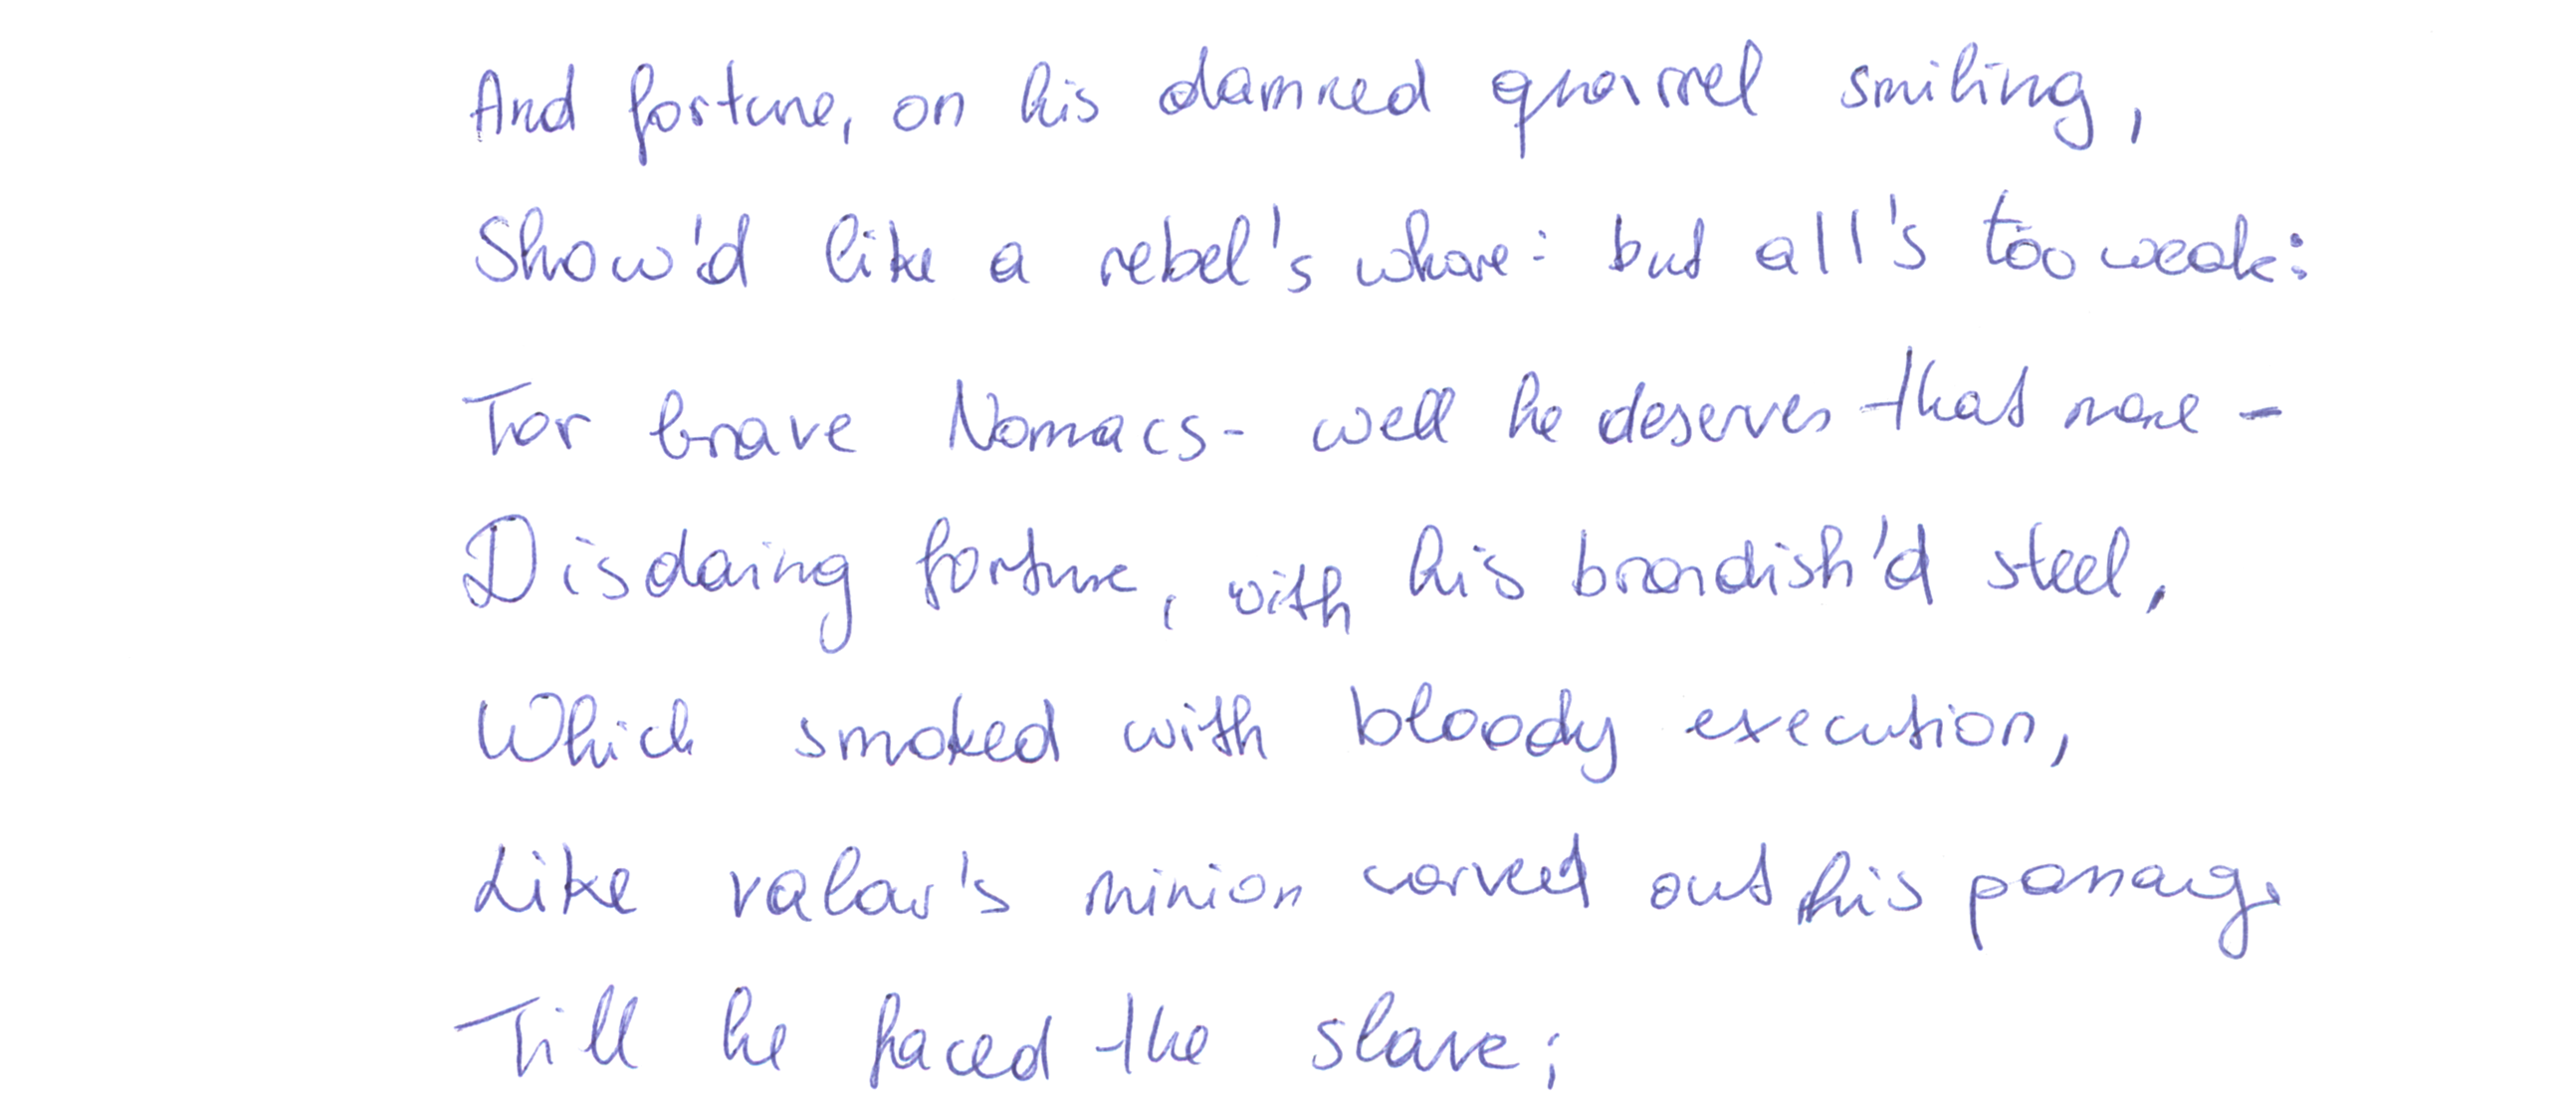 And fortune, on his damned quarrel smiling,
Show'd like a rebel's whore: but all's too weak:
For brave Nomacs - well he deserves that name -
Disdaing fortune, with his brandish'd steel,
Which smoked with bloody execution,
Like valour's minion carved out his passage
Till he faced the slave;